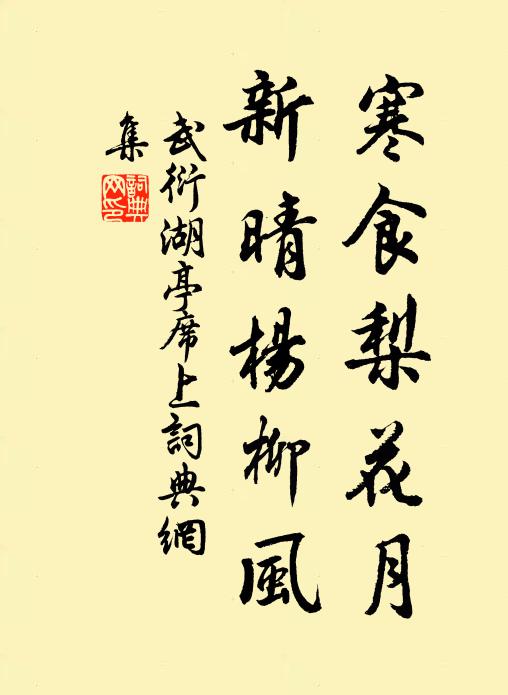 寒食梨花月
新晴楊柳風
武衍湖亭席上詞典網
集
詞典
网印